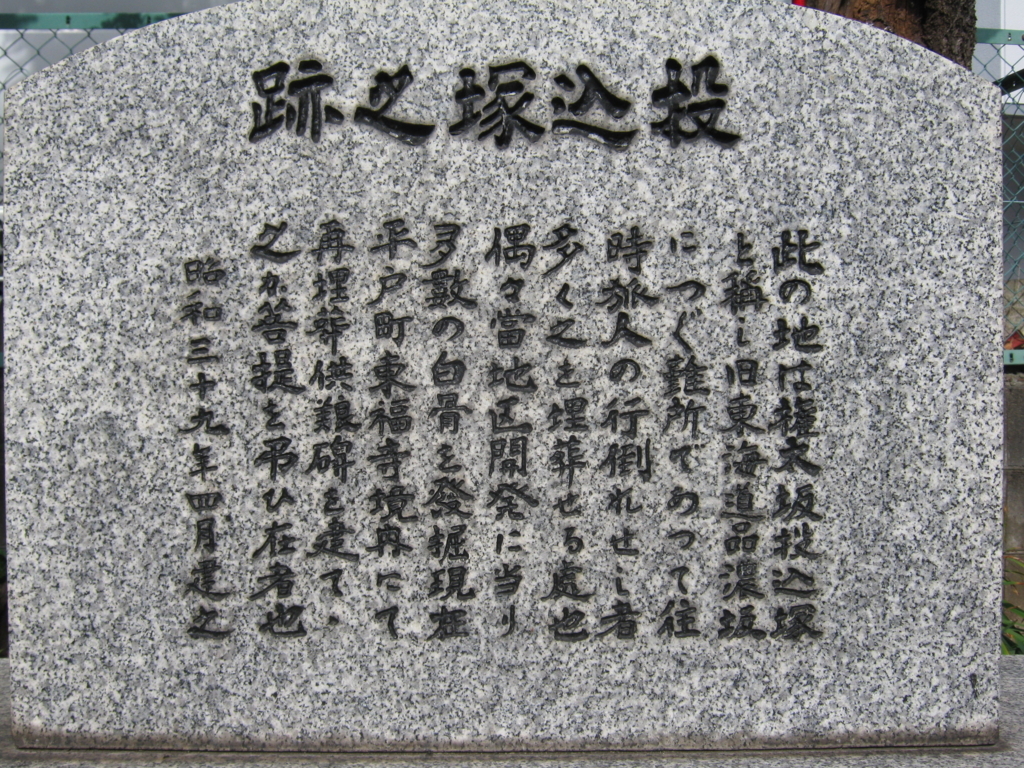 投込塚之跡
此の地は權太坂投込塚
と稱し旧東海道品濃坂
につぐ難所であつて往
時旅人の行倒れせし者
多く之を埋葬せる處也
偶々當地区開発に当り
多數の白骨を發掘現在
平戸町東福寺境内にて
再埋葬供養碑を建て、
之が菩提を弔ひ在者也
昭和三十九年四月建之